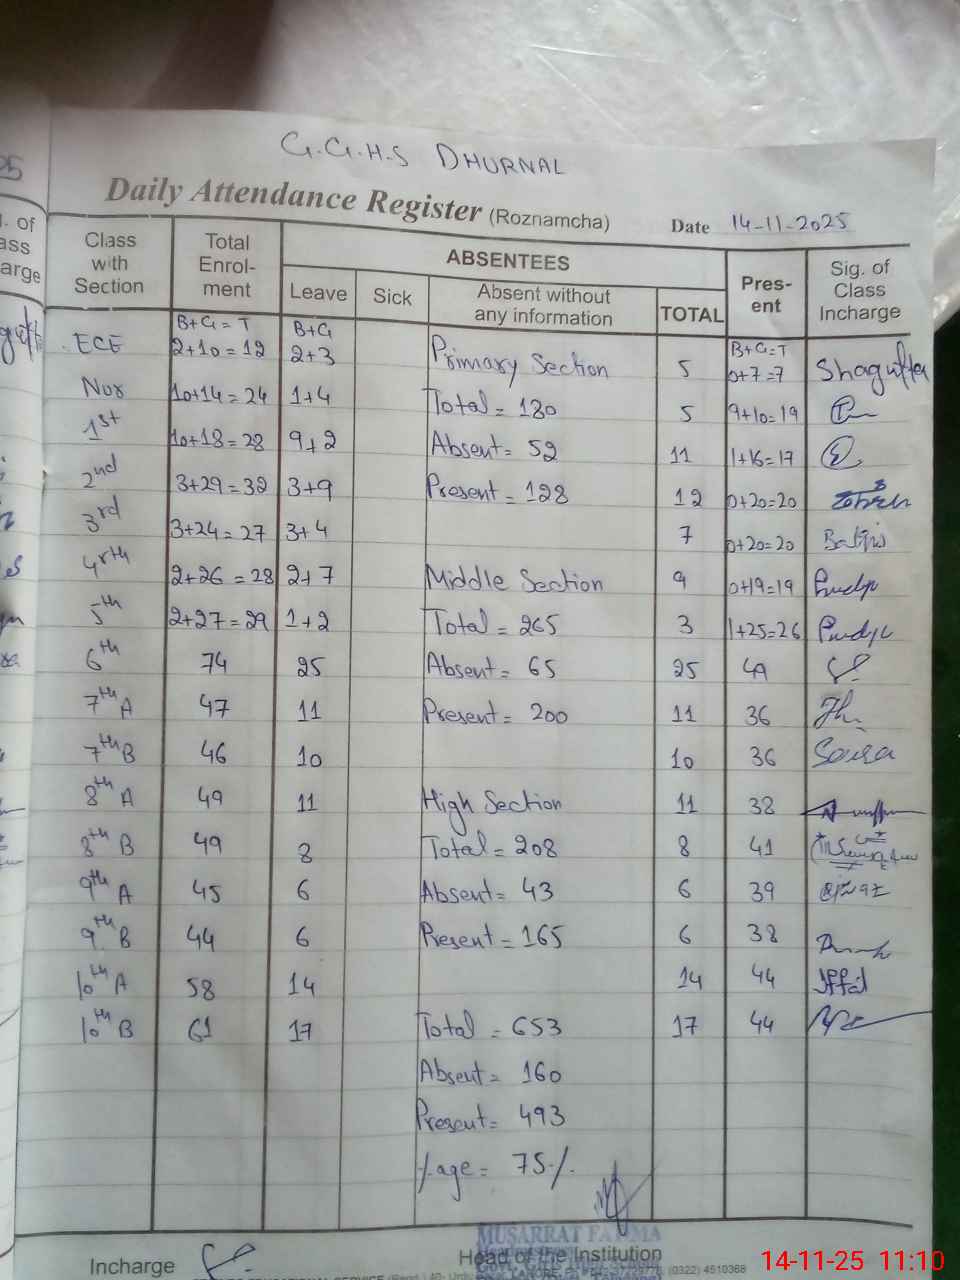 G.G.H.S DHURNAL
Daily Attendance Register (Roznamcha) Date 14-11-2025
Class with Section Total Enrol-ment ABSENTEES Pres-ent Sig. of Class Incharge
Leave Sick Absent without any information TOTAL
B+G=T B+G B+G=T
ECE 2+10=12 2+3 Primary Section 5 0+7=7 Shagufta
Nur 10+14=24 1+4 Total=180 5 9+10=19
1st 10+18=28 9+2 Absent=52 11 1+16=17
2nd 3+29=32 3+9 Present=128 12 0+20=20
3rd 3+24=27 3+4 7 0+20=20
4rth 2+26=28 2+7 Middle Section 9 0+19=19
5th 2+27=29 1+2 Total=265 3 1+25=26
6th 74 25 Absent=65 25 49
7th A 47 11 Present=200 11 36
7th B 46 10 10 36
8th A 49 11 High Section 11 38
8th B 49 8 Total=208 8 41
9th A 45 6 Absent=43 6 39
9th B 44 6 Present=165 6 38
10th A 58 14 14 44
10th B 61 17 Total=653 17 44
Absent=160
Present=493
%age=75%
MUSARRAT FATIMA
Incharge Head of the Institution
(0322) 4510368
14-11-25 11:10